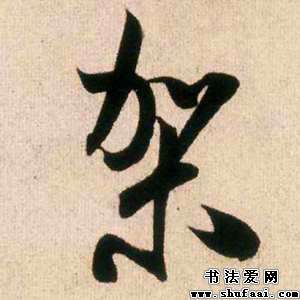 架
书法爱网
www.shufaai.com